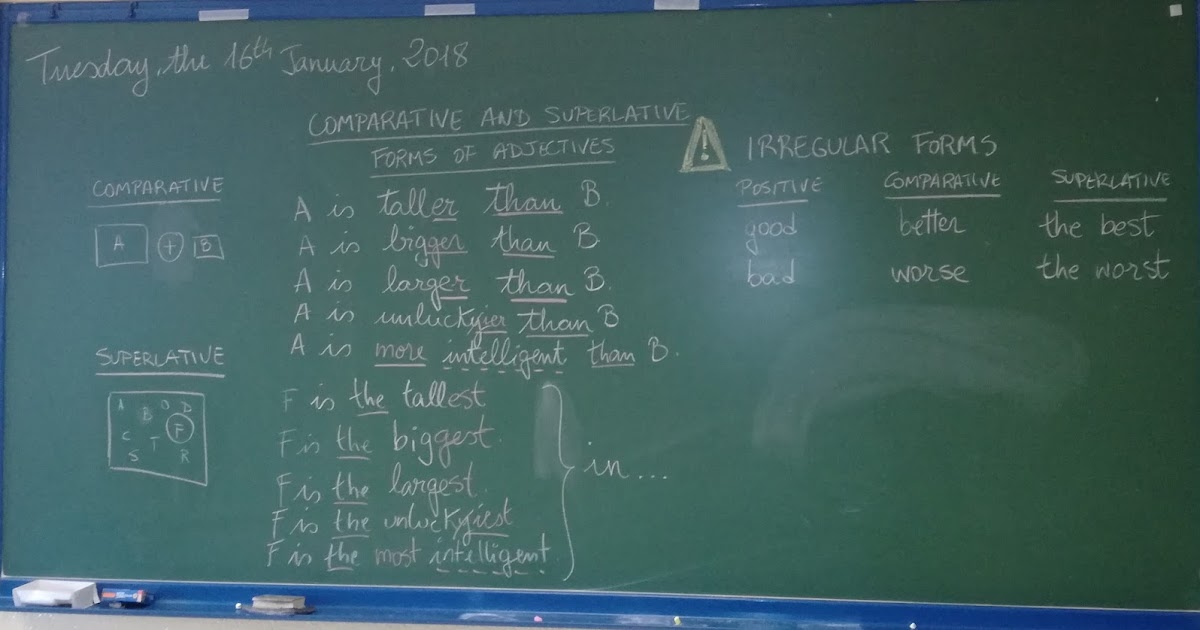 Tuesday, the 16th January, 2018
COMPARATIVE AND SUPERLATIVE
FORMS OF ADJECTIVES
COMPARATIVE
A + B
A is taller than B.
A is bigger than B
A is larger than B.
A is unluckyier than B
A is more intelligent than B.
SUPERLATIVE
A B O D
F
C T
S R
F is the tallest
F is the biggest.
F is the largest.
F is the unluckyiest
F is the most intelligent.
in...
! IRREGULAR FORMS
POSITIVE COMPARATIVE SUPERLATIVE
good better the best
bad worse the worst